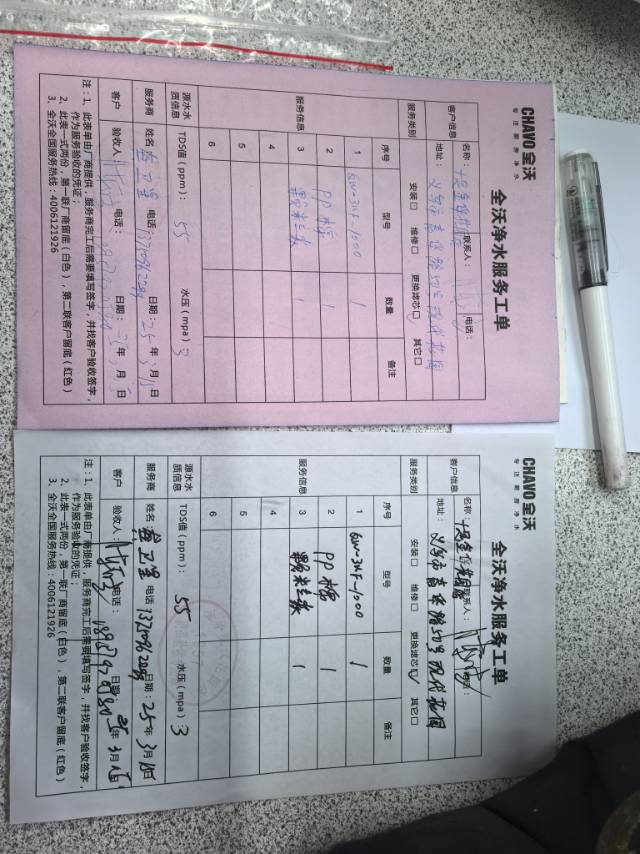 CHAVO全沃
专注新鲜净水
全沃净水服务工单
客户信息
名称:
联系人:
电话:
地址: 义乌市
服务类别
安装□ 维修□ 更换滤芯☑ 其它□
服务信息
序号 型号 数量 备注
1 6W-34F-1000 1
2 PP棉 1
3 1
4
5
6
源水水质信息
TDS值(ppm): 55
水压(mpa) 3
服务商 姓名 卫星 电话: 日期: 25年3月 日
客户 验收人: 电话: 日期: 25年 月 日
注:1、此表单由厂商提供,服务商完工后需要填写签字,并找客户验收签字,
作为服务验收的凭证;
2、此表一式两份,第一联厂商留底(白色),第二联客户留底(红色)
3、全沃全国服务热线:4006121926
CHAVO全沃
专注新鲜净水
全沃净水服务工单
客户信息
名称:
联系人:
电话:
地址: 义乌市
服务类别
安装□ 维修□ 更换滤芯☑ 其它□
服务信息
序号 型号 数量 备注
1 6W-34F-1000 1
2 PP棉 1
3 1
4
5
6
源水水质信息
TDS值(ppm): 55
水压(mpa) 3
服务商 姓名 卫星 电话 日期: 25年3月 日
客户 验收人: 电话: 日期: 25年3月 日
注:1、此表单由厂商提供,服务商完工后需要填写签字,并找客户验收签字,
作为服务验收的凭证;
2、此表一式两份,第一联厂商留底(白色),第二联客户留底(红色)
3、全沃全国服务热线:4006121926